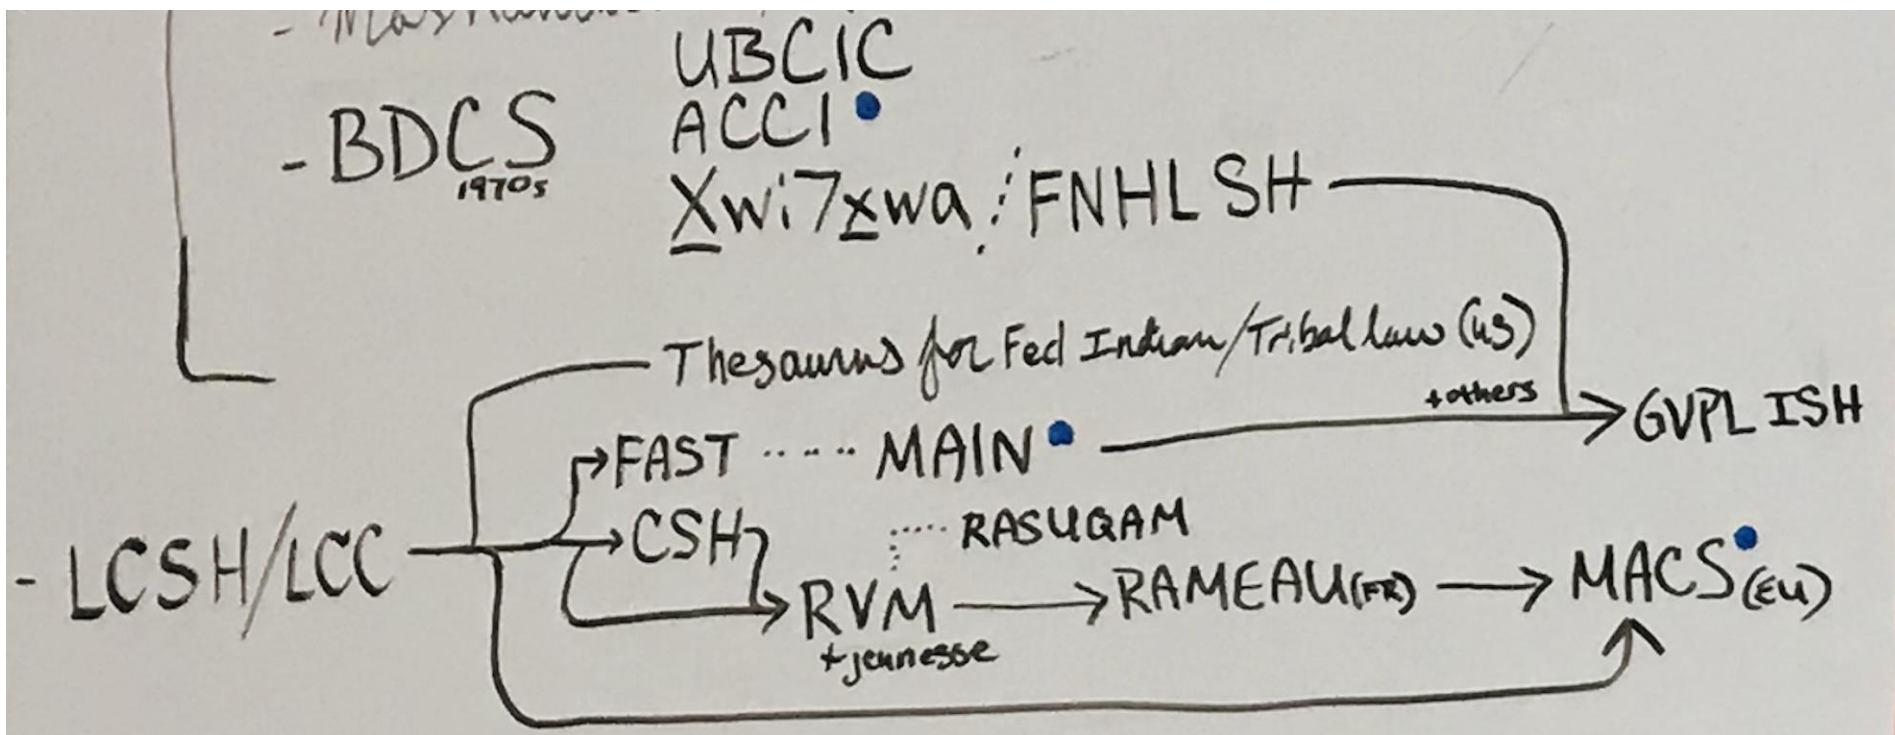 UBCIC
- BDCS
1970s
ACCI
X̲wi7x̲wa / FNHLSH
Thesaurus for Fed Indian/Tribal law (US)
+others
GVPL ISH
FAST ...... MAIN
CSH
RASUQAM
- LCSH/LCC
RVM
+jeunesse
RAMEAU (FR)
MACS (EU)